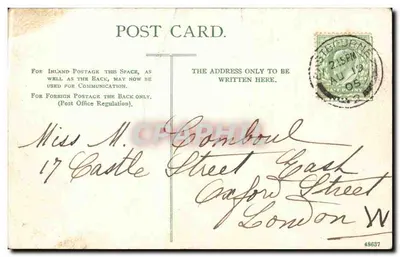 POST CARD.
FOR INLAND POSTAGE THIS SPACE, AS
WELL AS THE BACK, MAY NOW BE
USED FOR COMMUNICATION.
FOR FOREIGN POSTAGE THE BACK ONLY.
(Post Office Regulation).
THE ADDRESS ONLY TO BE
WRITTEN HERE.
EASTBOURNE
2.15 PM
Miss M.
17 Castle Street East
Oxford Street
London W
48637